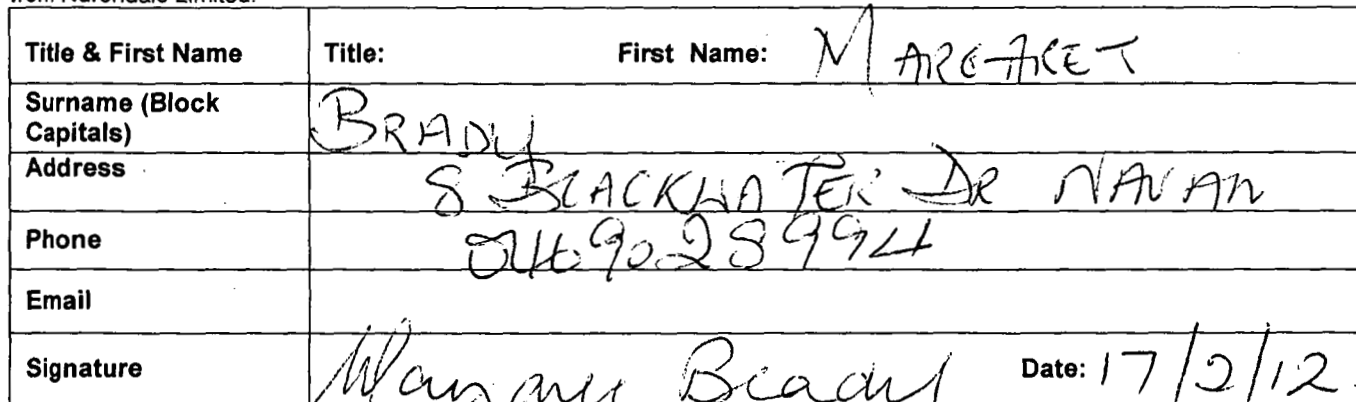 Nurendale Limited.
Title & First Name Title: First Name: MARGARET
Surname (Block
Capitals) BRADY
Address 8 BLACKWATER DR NAVAN
Phone 0469028994
Email
Signature Margaret Brady Date: 17/2/12